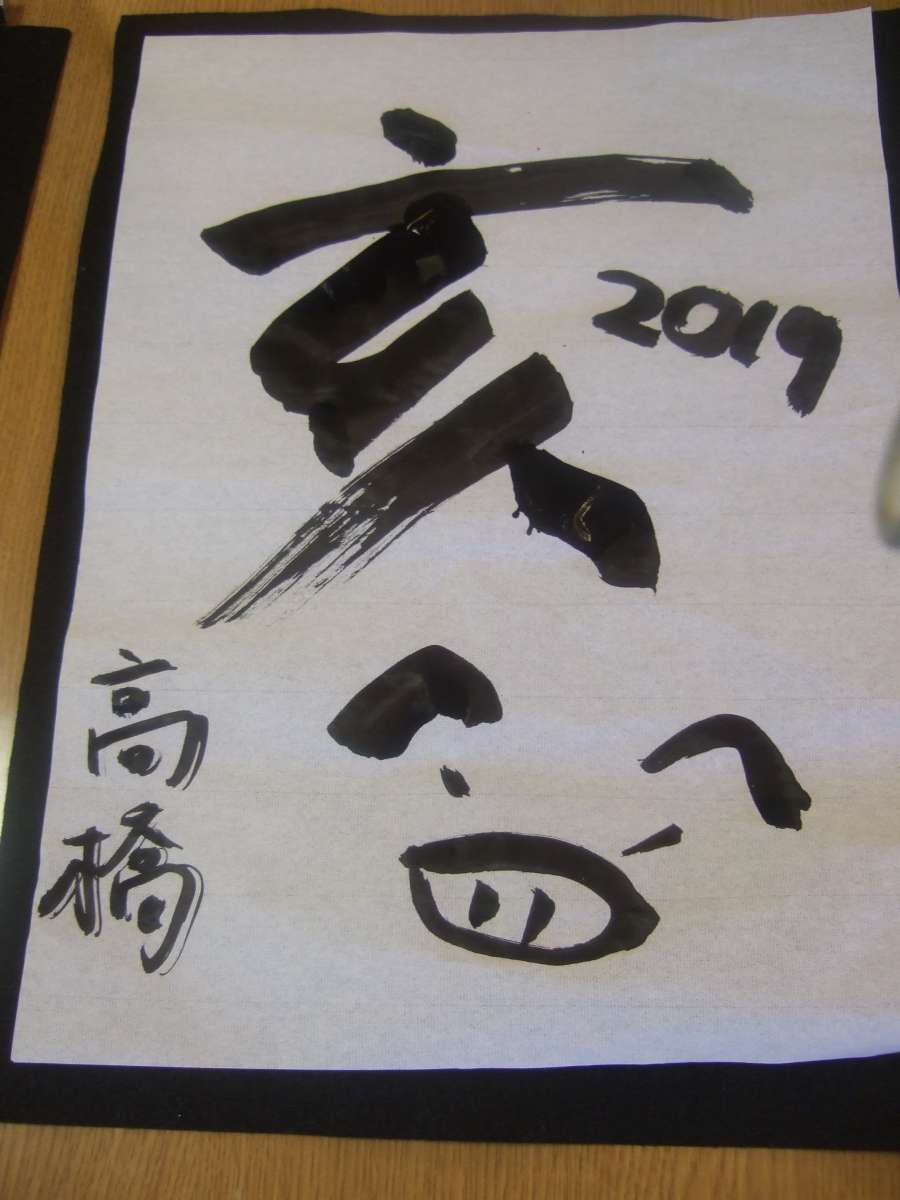 亥
2019
高橋